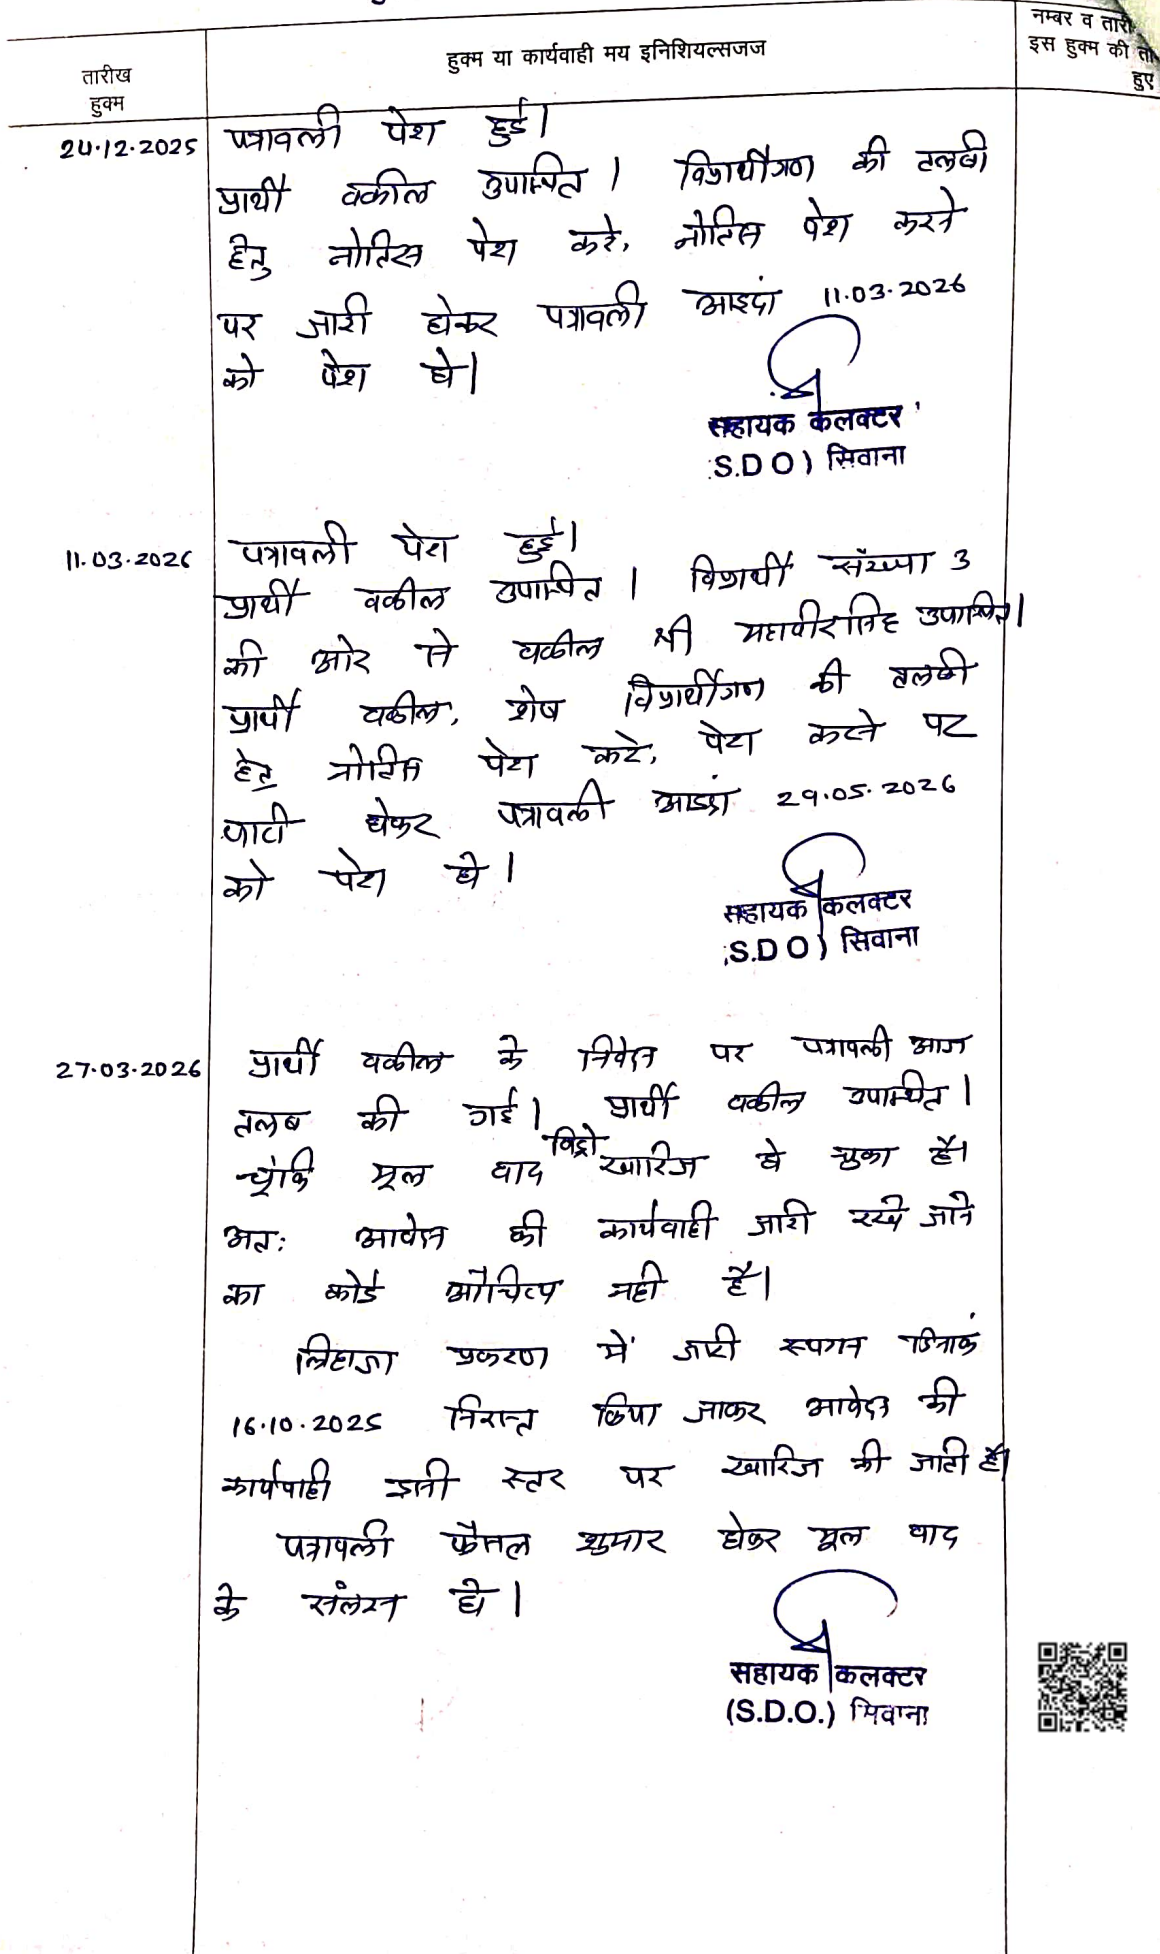 नम्बर व तारी
इस हुक्म की ता
हुए
हुक्म या कार्यवाही मय इनिशियल्सजज
तारीख
हुक्म
24.12.2025 पत्रावली पेश हुई।
प्रार्थी वकील उपस्थित। विप्रार्थीगण की तलबी
हेतु नोटिस पेश करे, नोटिस पेश करने
पर जारी होकर पत्रावली आइदां 11.03.2026
को पेश हो।
सहायक कलक्टर
S.D O) सिवाना
11.03.2026 पत्रावली पेश हुई।
प्रार्थी वकील उपस्थित। विप्रार्थी संख्या 3
की ओर से वकील श्री महावीरसिंह उपस्थित।
प्रार्थी वकील, शेष विप्रार्थीगण की तलबी
हेतु नोटिस पेश करे, पेश करने पर
जारी होकर पत्रावली आइदां 29.05.2026
को पेश हो।
सहायक कलक्टर
S.D O) सिवाना
27.03.2026 प्रार्थी वकील के निवेदन पर पत्रावली आज
तलब की गई। प्रार्थी वकील उपस्थित।
चूंकि मूल वाद विड्रो खारिज हो चुका है।
अतः आवेदन की कार्यवाही जारी रखे जाने
का कोई औचित्य नही है।
लिहाजा प्रकरण में जारी स्थगन दिनांक
16.10.2025 निरस्त किया जाकर आवेदन की
कार्यवाही इसी स्तर पर खारिज की जाती है।
पत्रावली फैसल शुमार होकर मूल वाद
के संलग्न हो।
सहायक कलक्टर
(S.D.O.) सिवाना